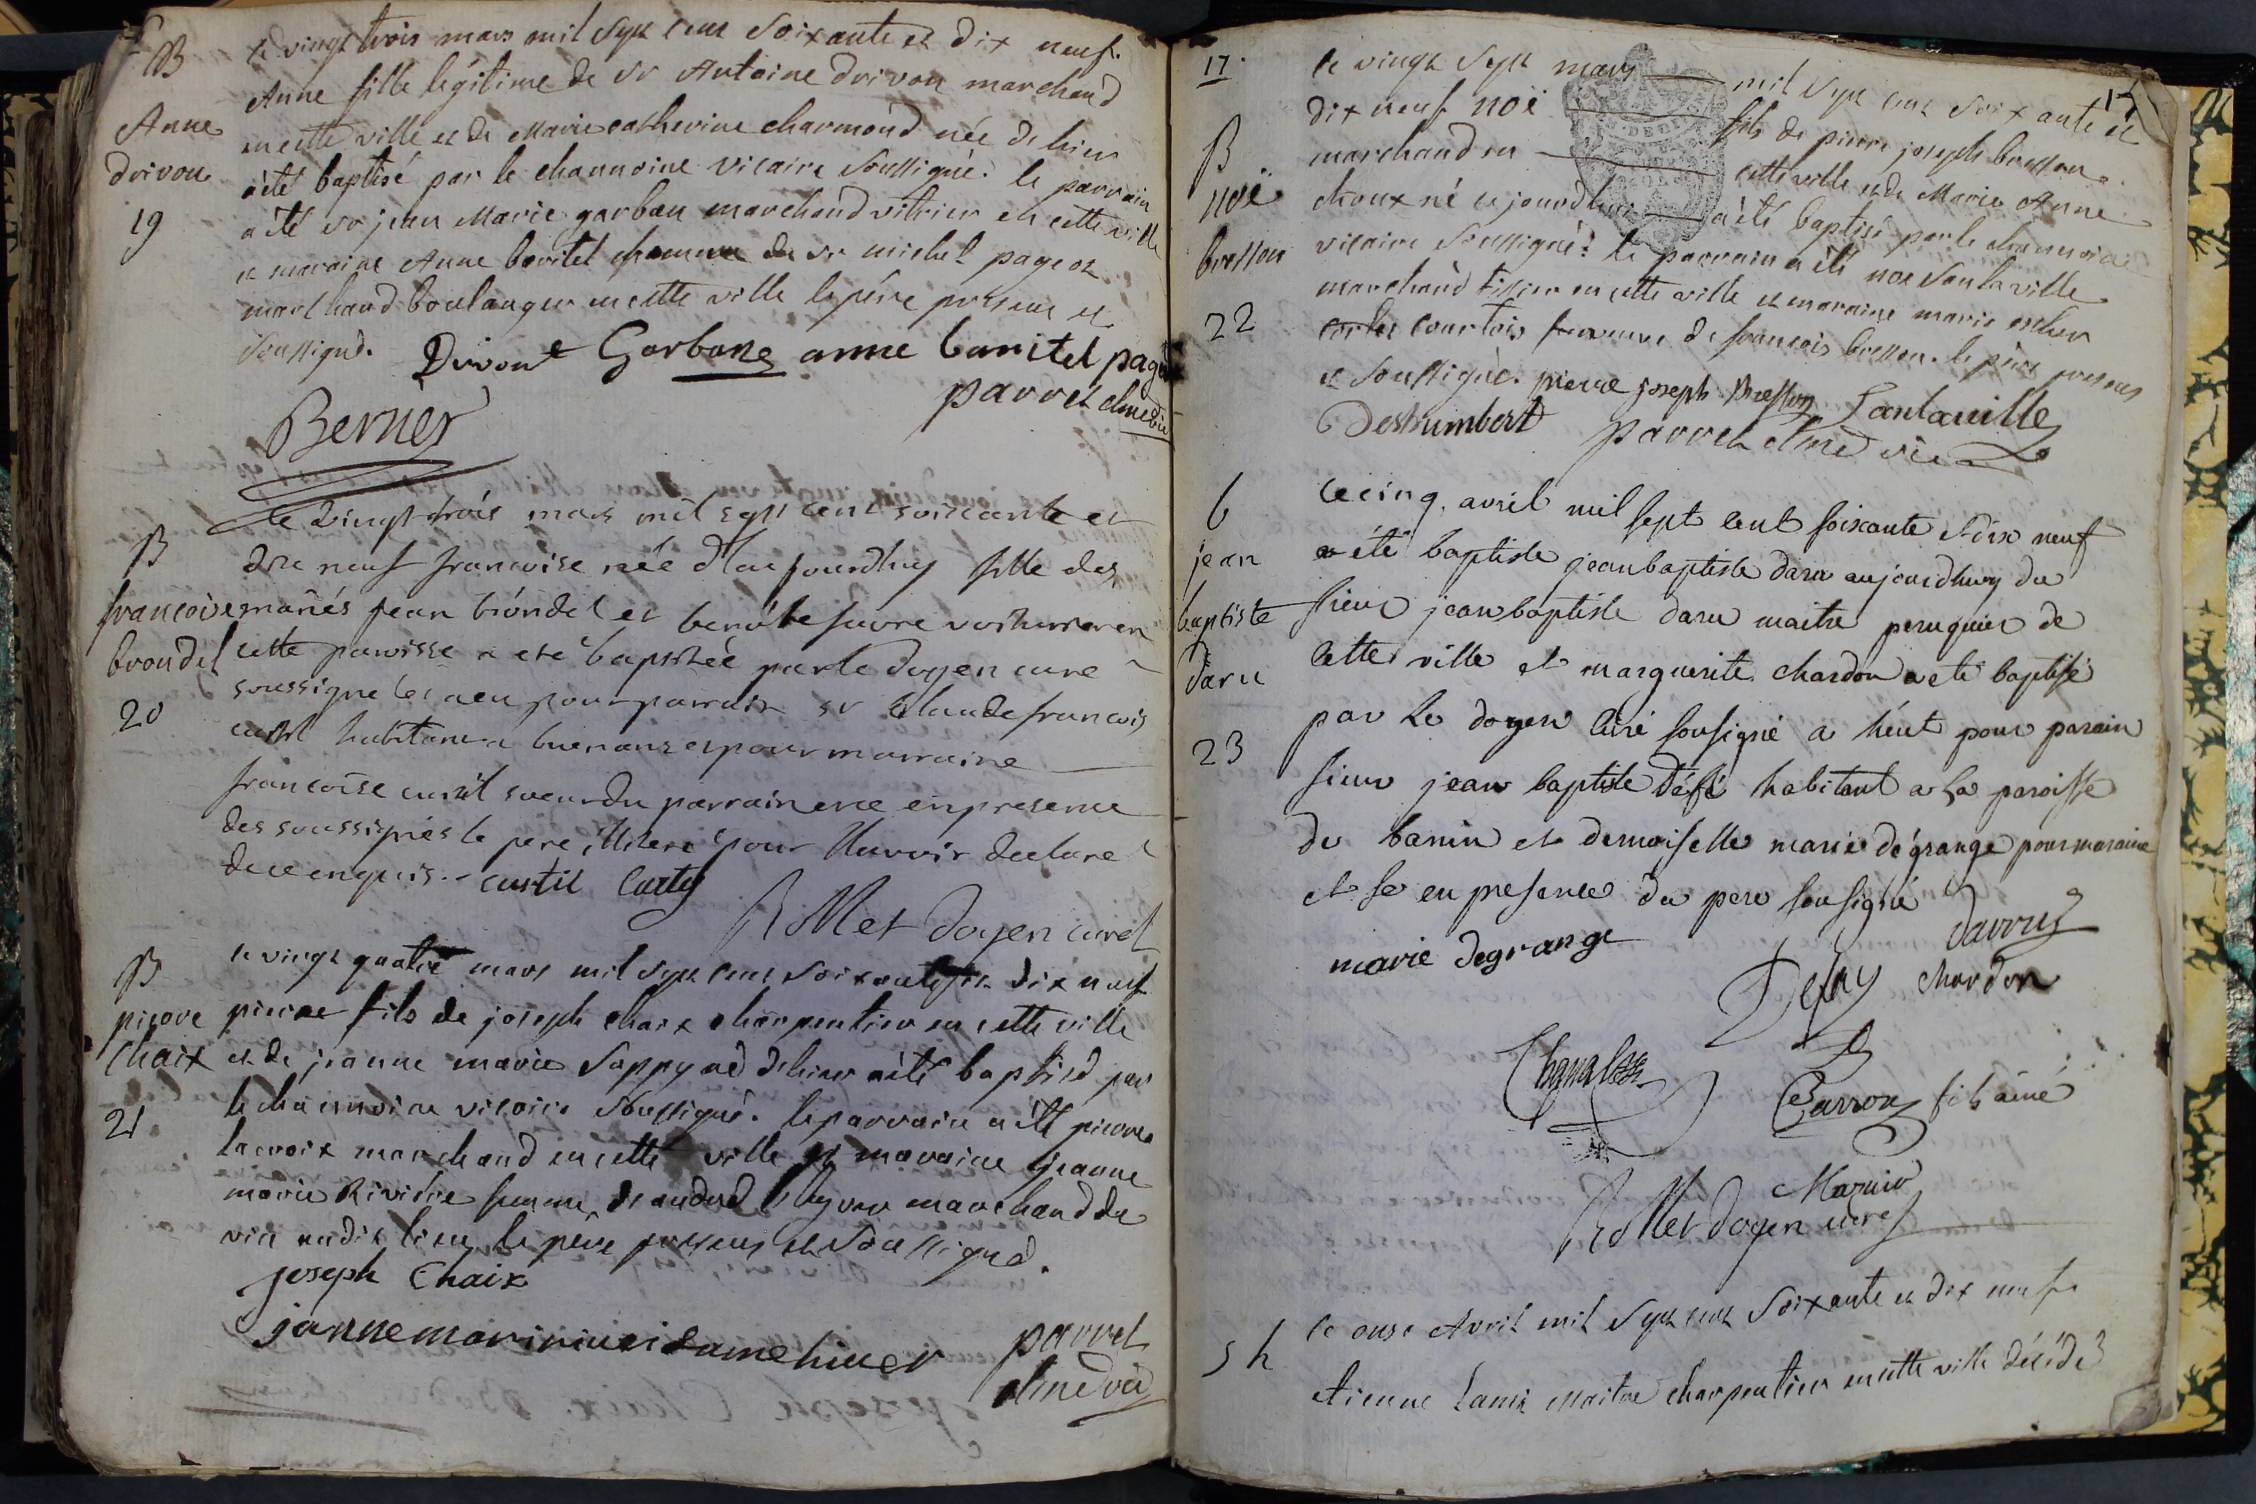 B
Anne
drivon
19
le vingt trois mars mil sept cent soixante et dix neuf.
Anne fille légitime de sr Antoine drivon marchand
en cette ville et de Marie catherine charmond née d'hier
a été baptisé par le chanoine vicaire soussigné. le parrain
a été sr jean Marie garban marchand vitrier en cette ville
et maraine Anne baritel femme de sr michel pageot
marchand boulanger en cette ville le père present et
soussigné.
Drivont Garbane anne baritel
parret
Bernier
B
francoise
brondel
20
le vingt trois mars mil sept cent soixante et
dix neuf francoise née d'aujourdhuy fille des
mariés jean briondel et benoite favre voiturier en
cette paroisse a eté baptisée par le doyen curé
soussigné et a eu pour parrain sr claude francois
custil habitant a et pour marraine
francoise custil soeur du parrain en presence
des soussignés le pere illiteré pour l'avoir declaré
de ce enquis. custil
Rollet doyen curé
B
pierre
Chaix
21
le vingt quatre mars mil sept cent soixante et dix neuf
pierre fils de joseph chaix charpentier en cette ville
et de jeanne marie Sappy né d'hier a été baptisé par
le chanoine vicaire soussigné. le parrain a été pierre
lacroix marchand en cette ville et maraine jeanne
marie Rivière femme d' marchand de
vin au dit lieu le père present et soussigné.
joseph Chaix
parret
17
B
noë
bresson
22
17
le vingt sept mars mil sept cent soixante et
dix neuf noë fils de pierre joseph bresson
marchand en cette ville et de Marie Anne
choux né ce jourd'hui a été baptisé par le chanoine
vicaire soussigné: le parrain a été noë santaville
marchand tissier en cette ville et maraine marie esther
courtois femme de francois bresson. le père present
et soussigné. pierre joseph Bresson Santaville
Destrumbert parret
b
jean
baptiste
daru
23
le cinq avril mil sept cent soixante et dix neuf
a été baptiste jean baptiste daru aujourdhuy du
sieur jean baptiste daru maitre peruquier de
cette ville et marguerite chardon a eté baptisé
par le doyen curé sousigné a héut pour parain
sieur jean baptiste habitant a la paroisse
de banin et demoiselle marie dégrange pour maraine
et se en presence du pere sousigné
marie degrange
chardon
fils ainé
Rollet doyen curé
s h
le onse Avril mil sept cent soixante et dix neuf
etienne Lami Maitre charpentier en cette ville décédé